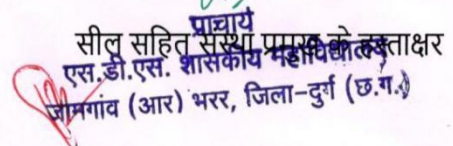 प्राचार्य
सील सहित संस्था प्रमुख के हस्ताक्षर
एस.डी.एस. शासकीय महाविद्यालय
जामगांव (आर) भरर, जिला-दुर्ग (छ.ग.)